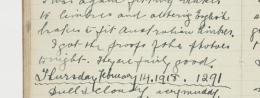 to limbers and altering English
brakes to fit Australian timber.
I got the proofs of the photos
to night. They are fairly good.
Thursday February 14. 1918. 1291
Dull & cloudy very muddy